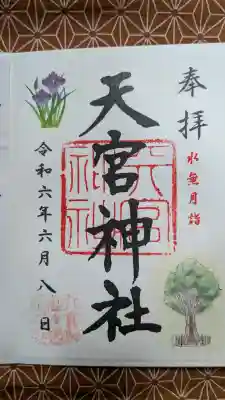 奉拝
水無月詣
天宮神社
天宮神社
令和六年六月八日